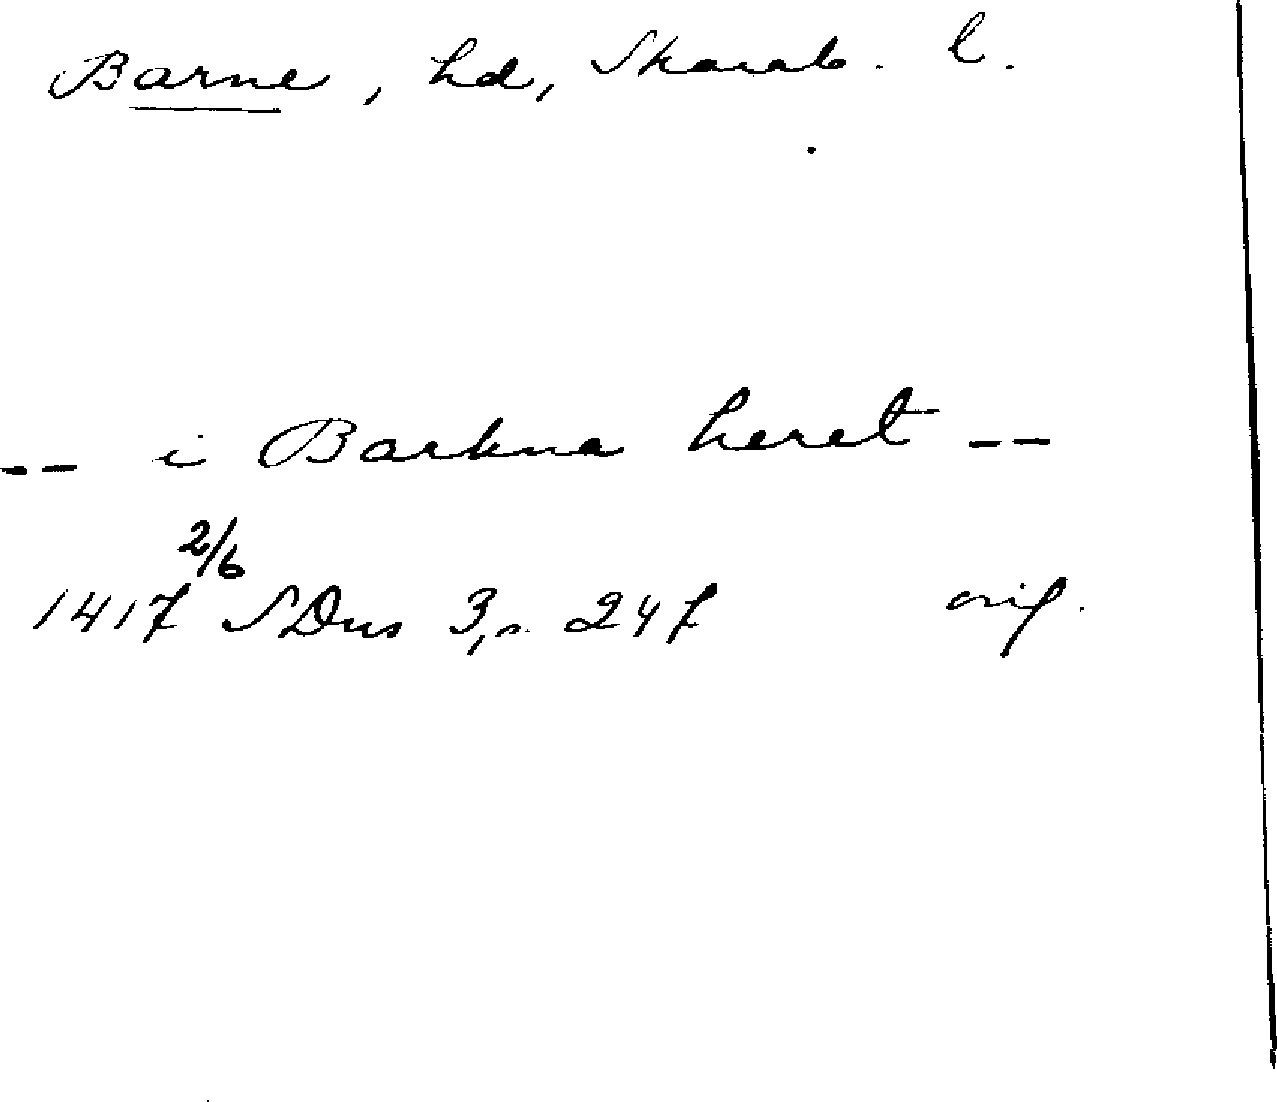 Barne, hd, Skarab. l.
-- i Barkna heret --
1417 2/6 SDns 3, s. 247 orig.